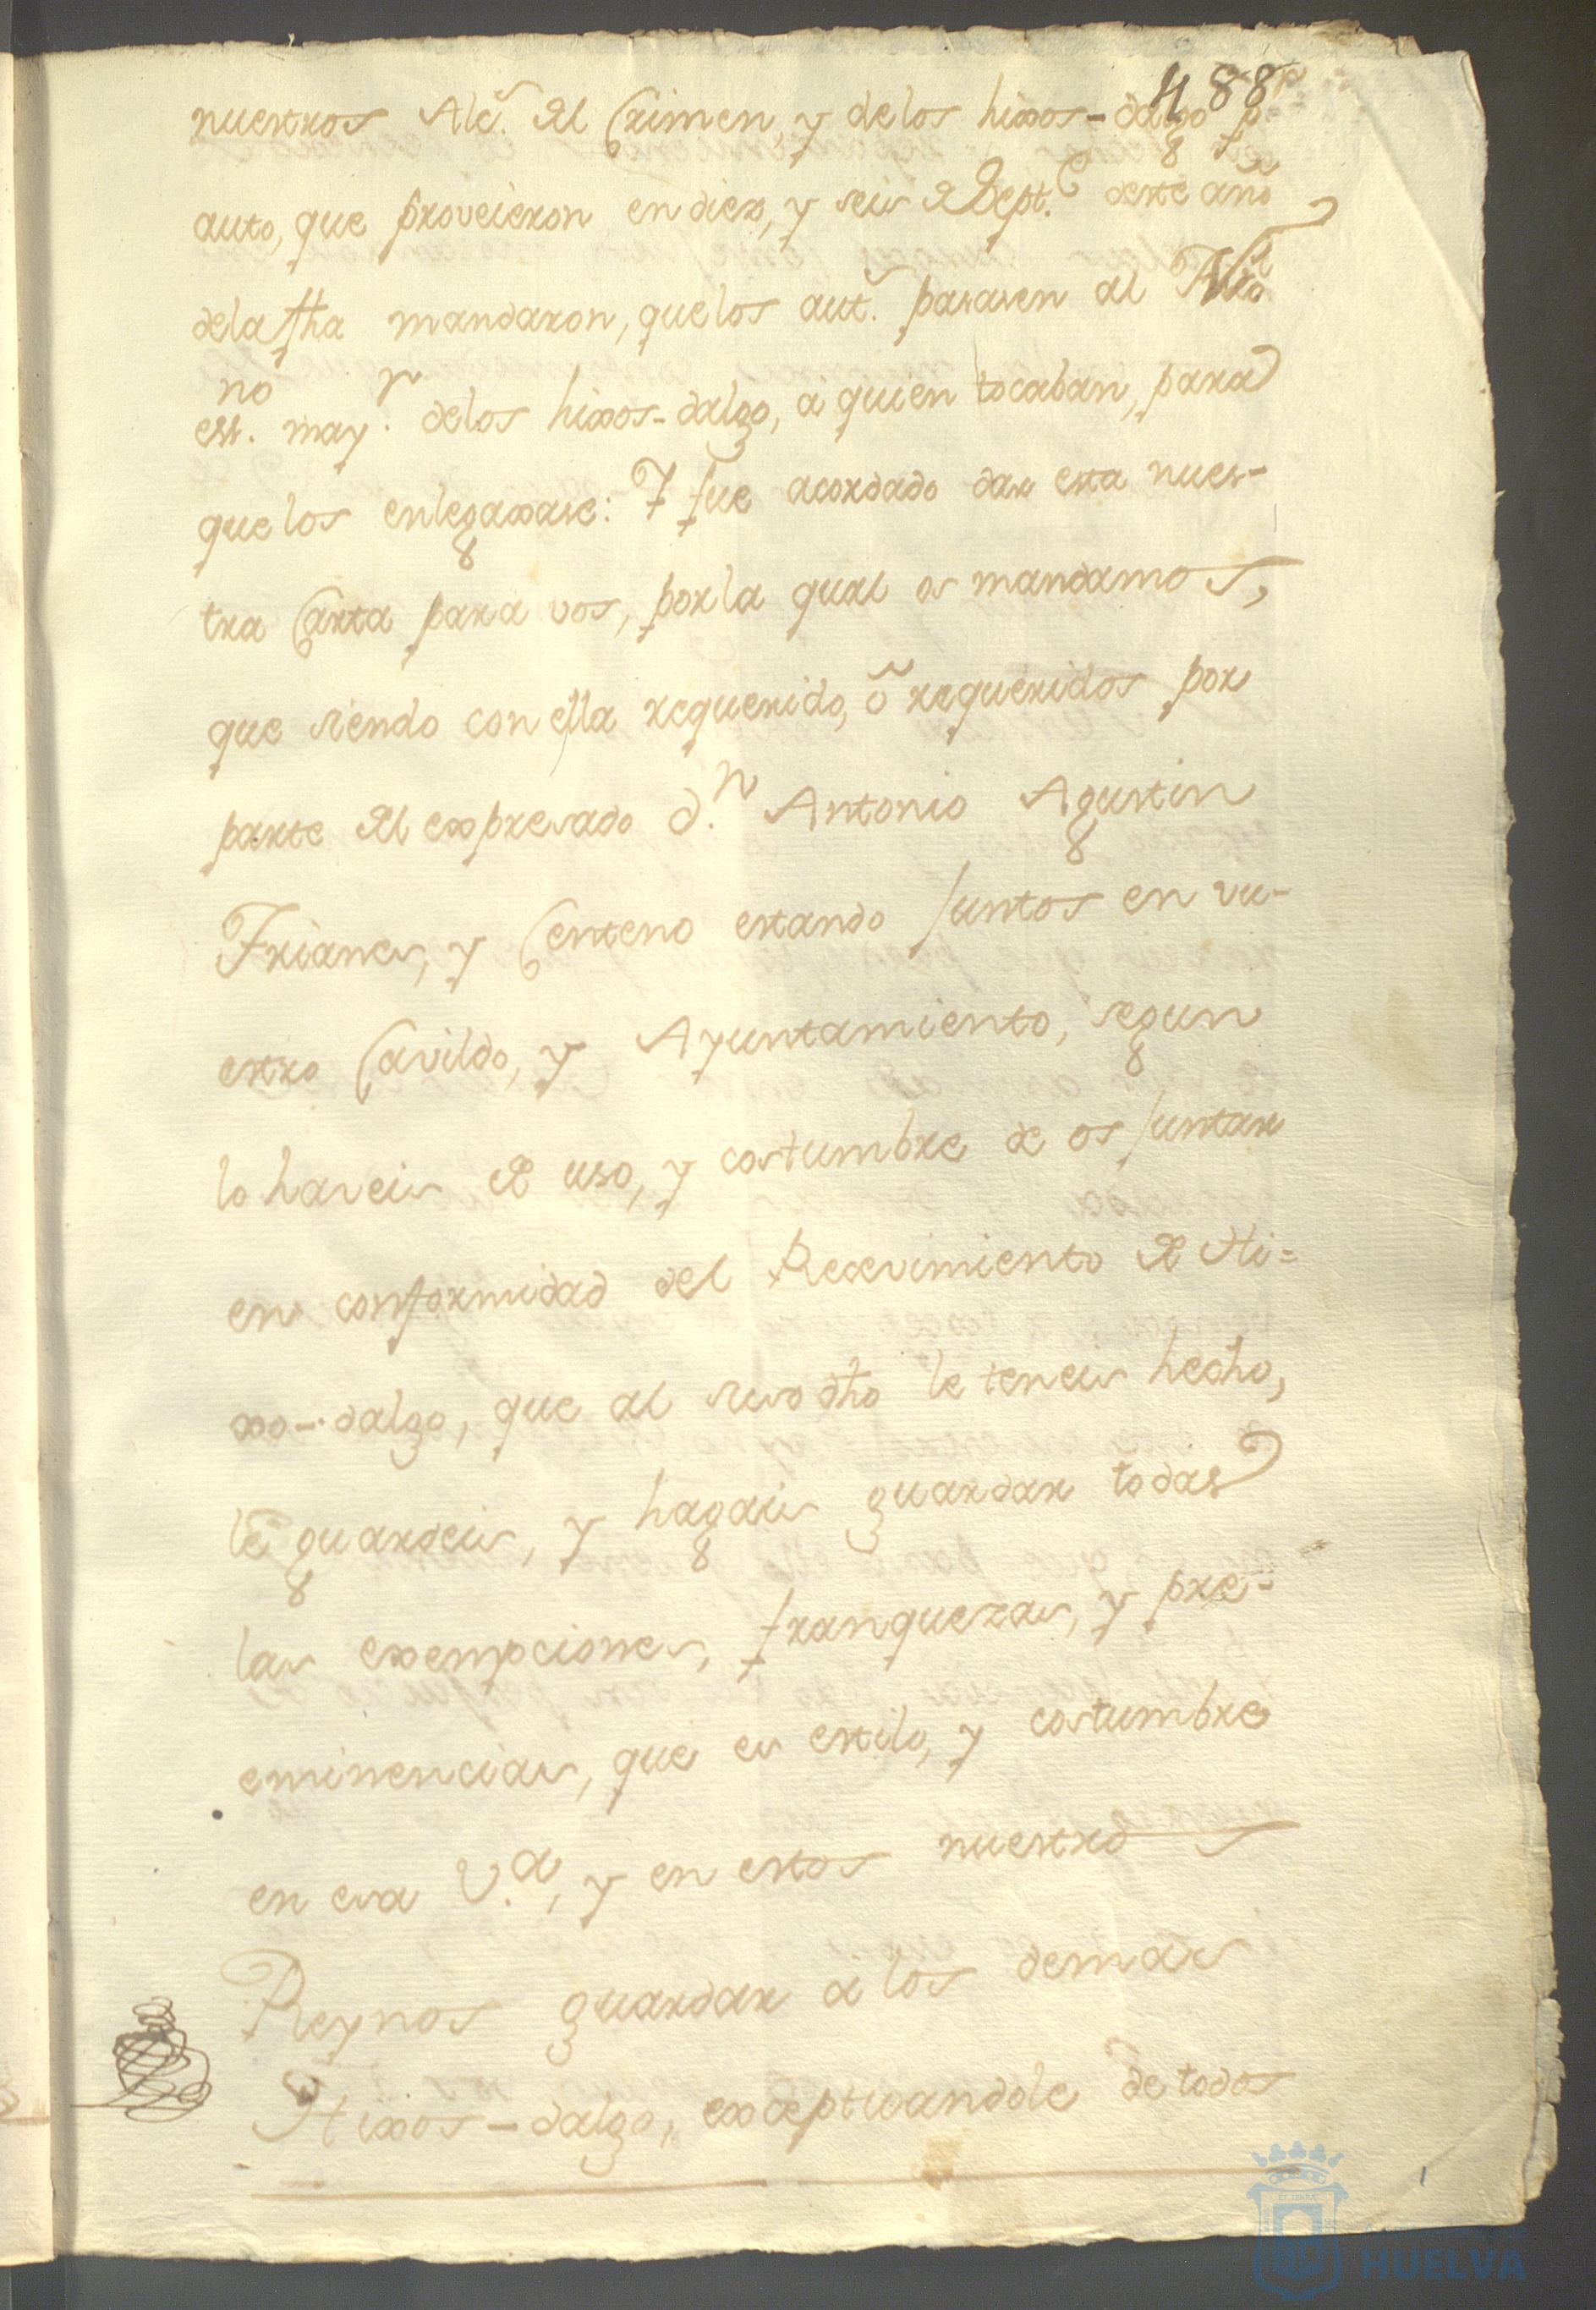 488
nuestros Alc.^s del Crimen, y de los hixos-dalgo p.^r
auto, que proveieron en diez, y seis de Sept.^e deste año
de la fha mandaron, que los aut.^s pasasen al
est.^no may.^r de los hixos-dalgo, a quien tocaban, para
que los enlegaxase: Y fue acordado dar esta nues-
tra Carta para vos, por la qual os mandamos,
que siendo con ella requerido, ô requeridos por
parte del expresado D.^n Antonio Agustin
Frianes, y Centeno estando Juntos en vu-
estro Cavildo, y Ayuntamiento, segun
lo haveis de uso, y costumbre de os Juntar
en conformidad del Recevimiento de Hi=
xo-dalgo, que al suso dho le teneis hecho,
le guardeis, y hagais guardar todas
las exempciones, franquezas, y pre-
eminencias, que es estilo, y costumbre
en esa V.^a, y en estos nuestros
Reynos guardar a los demas
Hixos-dalgo, exceptuandole de todos
HUELVA